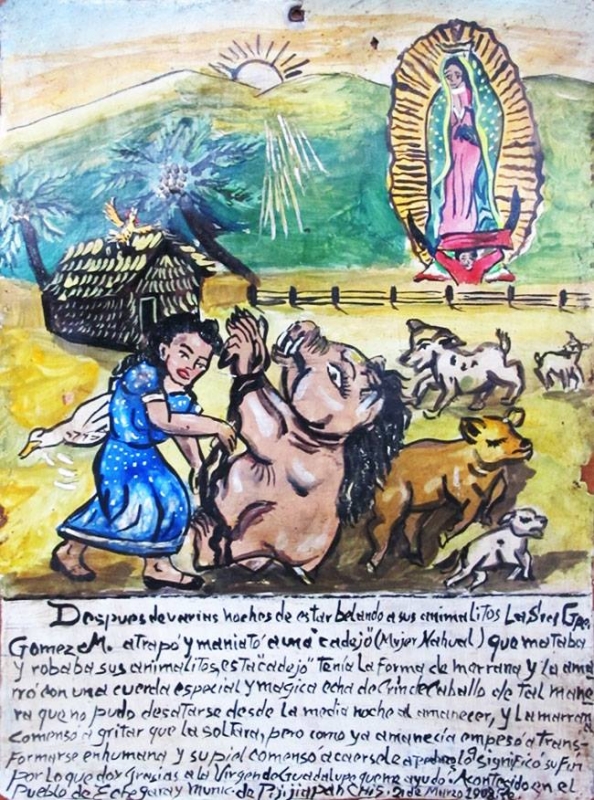 Despues de varias noches de estar belando a sus animalitos La Sra Gpe
Gomez M. atrapó y maniató a una "cadejo" (Mujer Nahual) que mataba
y robaba sus animalitos, esta "cadejo" tenía La forma de marrana y la ama
rró con una cuerda especial y magica echa de Crin de Caballo de tal mane
ra que no pudo desatarse desde la media noche al amanecer, y La marrana
comensó a gritar que la soltara, pero como ya amanecía empesó a trans-
formarse en humana y su piel comensó a caersele a pedazos lo q significó su fin
por Lo que doy Grasias a la Virgen de Guadalupe que me ayudó. Acontecido en el
Pueblo de Echegaray Munic. de Pijijiapan Chis. 21 de Marzo